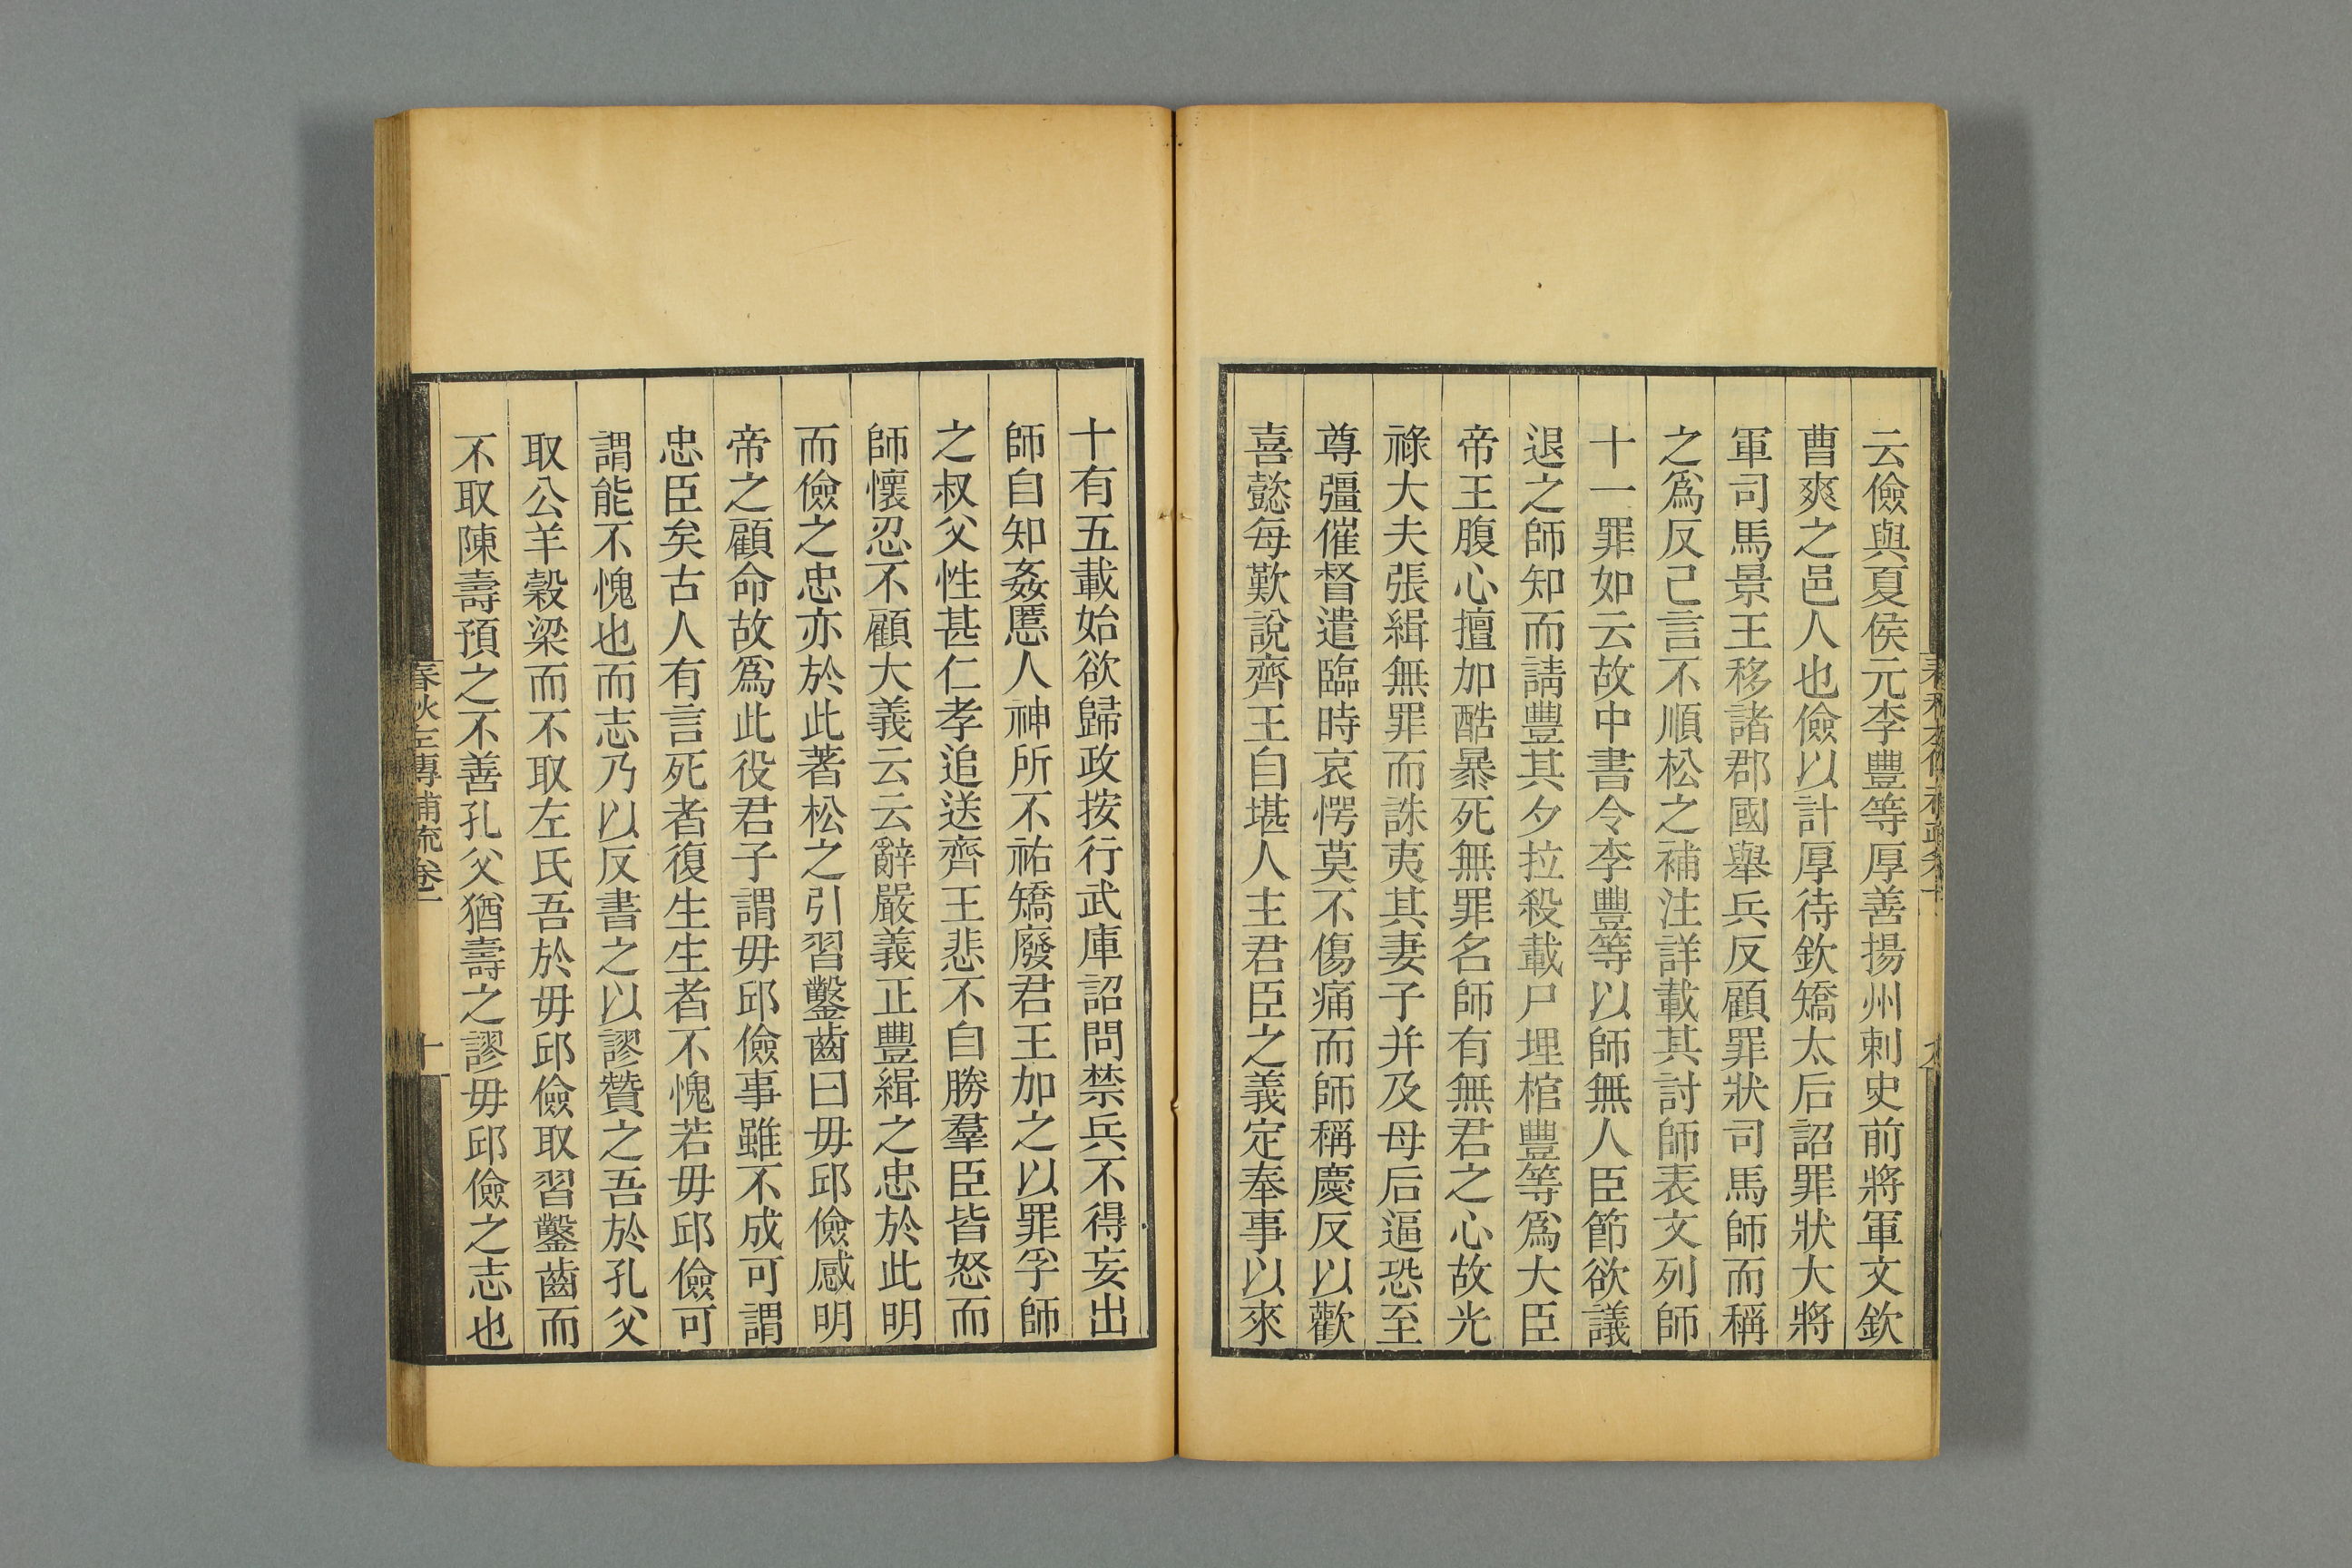 云儉與夏侯元李豐等厚善揚州刺史前將軍文欽
曹爽之邑人也儉以計厚待欽矯太后詔罪狀大將
軍司馬景王移諸郡國舉兵反顧罪狀司馬師而稱
之爲反己言不順松之補注詳載其討師表文列師
十一罪如云故中書令李豐等以師無人臣節欲議
退之師知而請豐其夕拉殺載尸埋棺豐等爲大臣
帝王腹心擅加酷暴死無罪名師有無君之心故光
祿大夫張緝無罪而誅夷其妻子并及母后逼恐至
尊彊催督遣臨時哀愕莫不傷痛而師稱慶反以歡
喜懿每歎說齊王自堪人主君臣之義定奉事以來
十有五載始欲歸政按行武庫詔問禁兵不得妄出
師自知姦慝人神所不祐矯廢君王加之以罪孚師
之叔父性甚仁孝追送齊王悲不自勝羣臣皆怒而
師懷忍不顧大義云云辭嚴義正豐緝之忠於此明
而儉之忠亦於此著松之引習鑿齒曰毋邱儉感明
帝之顧命故爲此役君子謂毋邱儉事雖不成可謂
忠臣矣古人有言死者復生生者不愧若毋邱儉可
謂能不愧也而志乃以反書之以謬贊之吾於孔父
取公羊穀梁而不取左氏吾於毋邱儉取習鑿齒而
不取陳壽預之不善孔父猶壽之謬毋邱儉之志也
春秋左傳補疏卷一
十